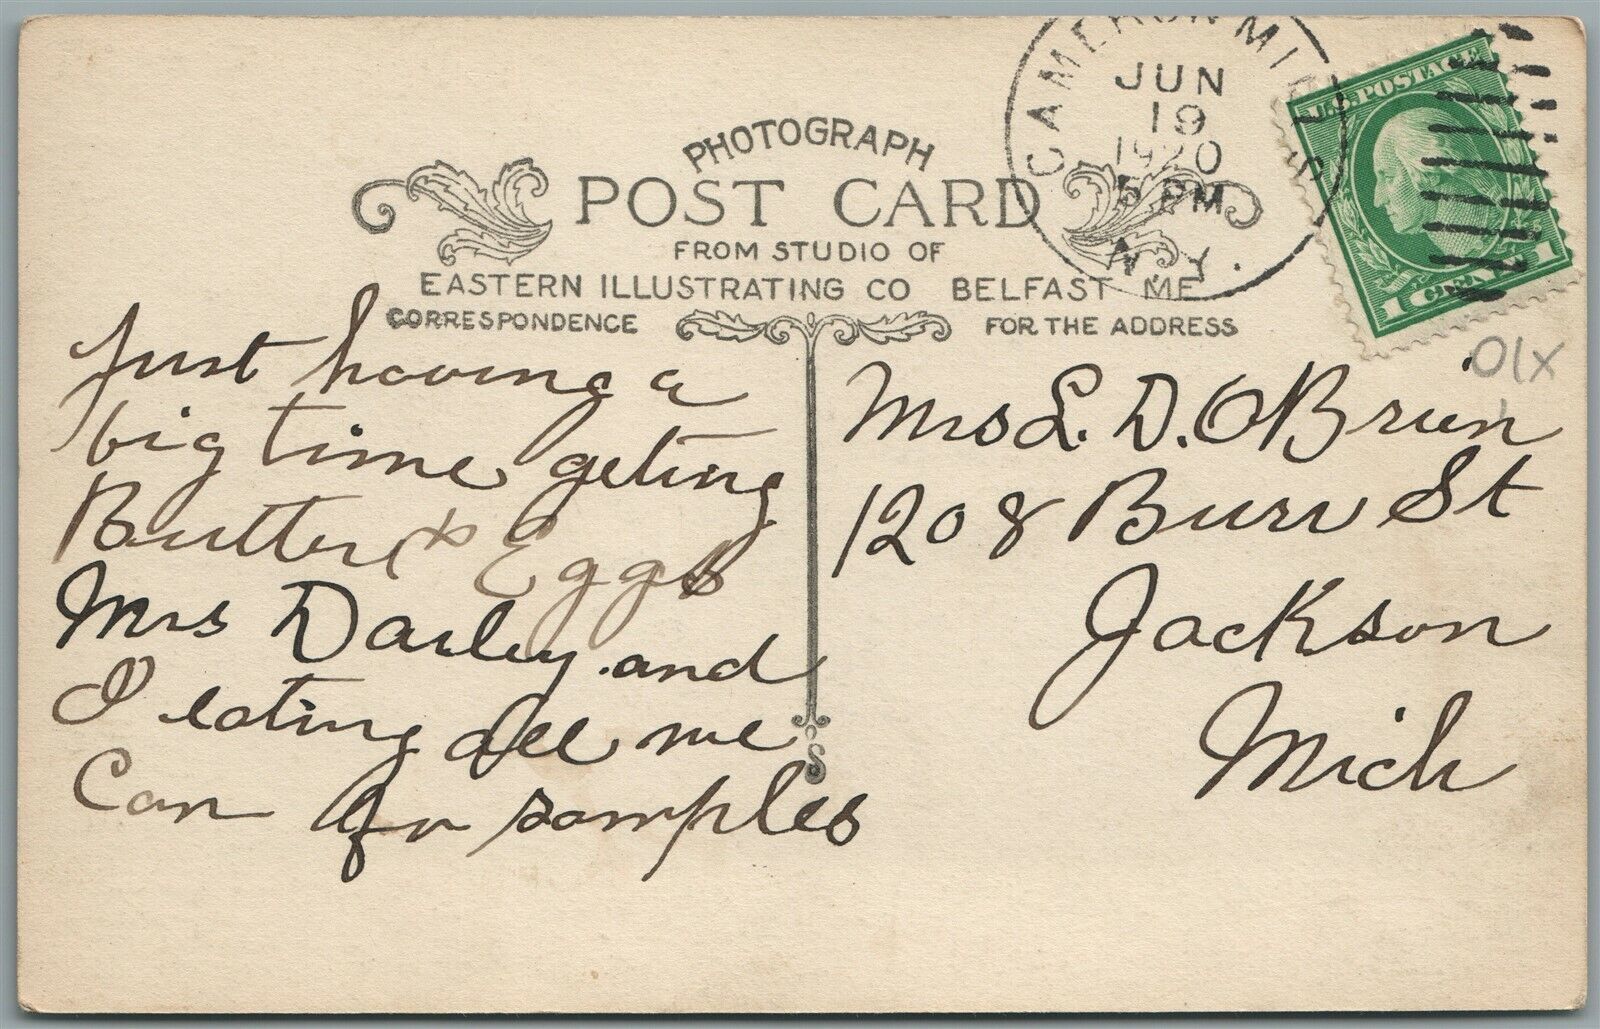 CAMERON MILLS
JUN
19
1920
5 PM
N.Y.
U.S. POSTAGE
1 CENT 1
PHOTOGRAPH
POST CARD
FROM STUDIO OF
EASTERN ILLUSTRATING CO BELFAST ME
CORRESPONDENCE
FOR THE ADDRESS
Just having a
big time geting
Butter & Eggs
Mrs Dailey and
I eating all we
Can for samples
S
01X
Mrs L. D. OBrien
1208 Burr St
Jackson
Mich